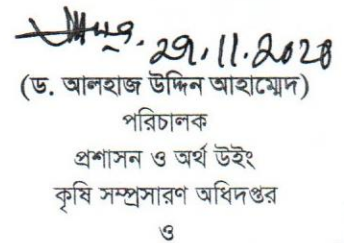 29.11.2020
(ড. আলহাজ উদ্দিন আহাম্মেদ)
পরিচালক
প্রশাসন ও অর্থ উইং
কৃষি সম্প্রসারণ অধিদপ্তর
ও